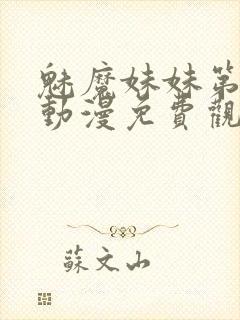 魅魔妹妹第
動漫免費觀
蘇文山